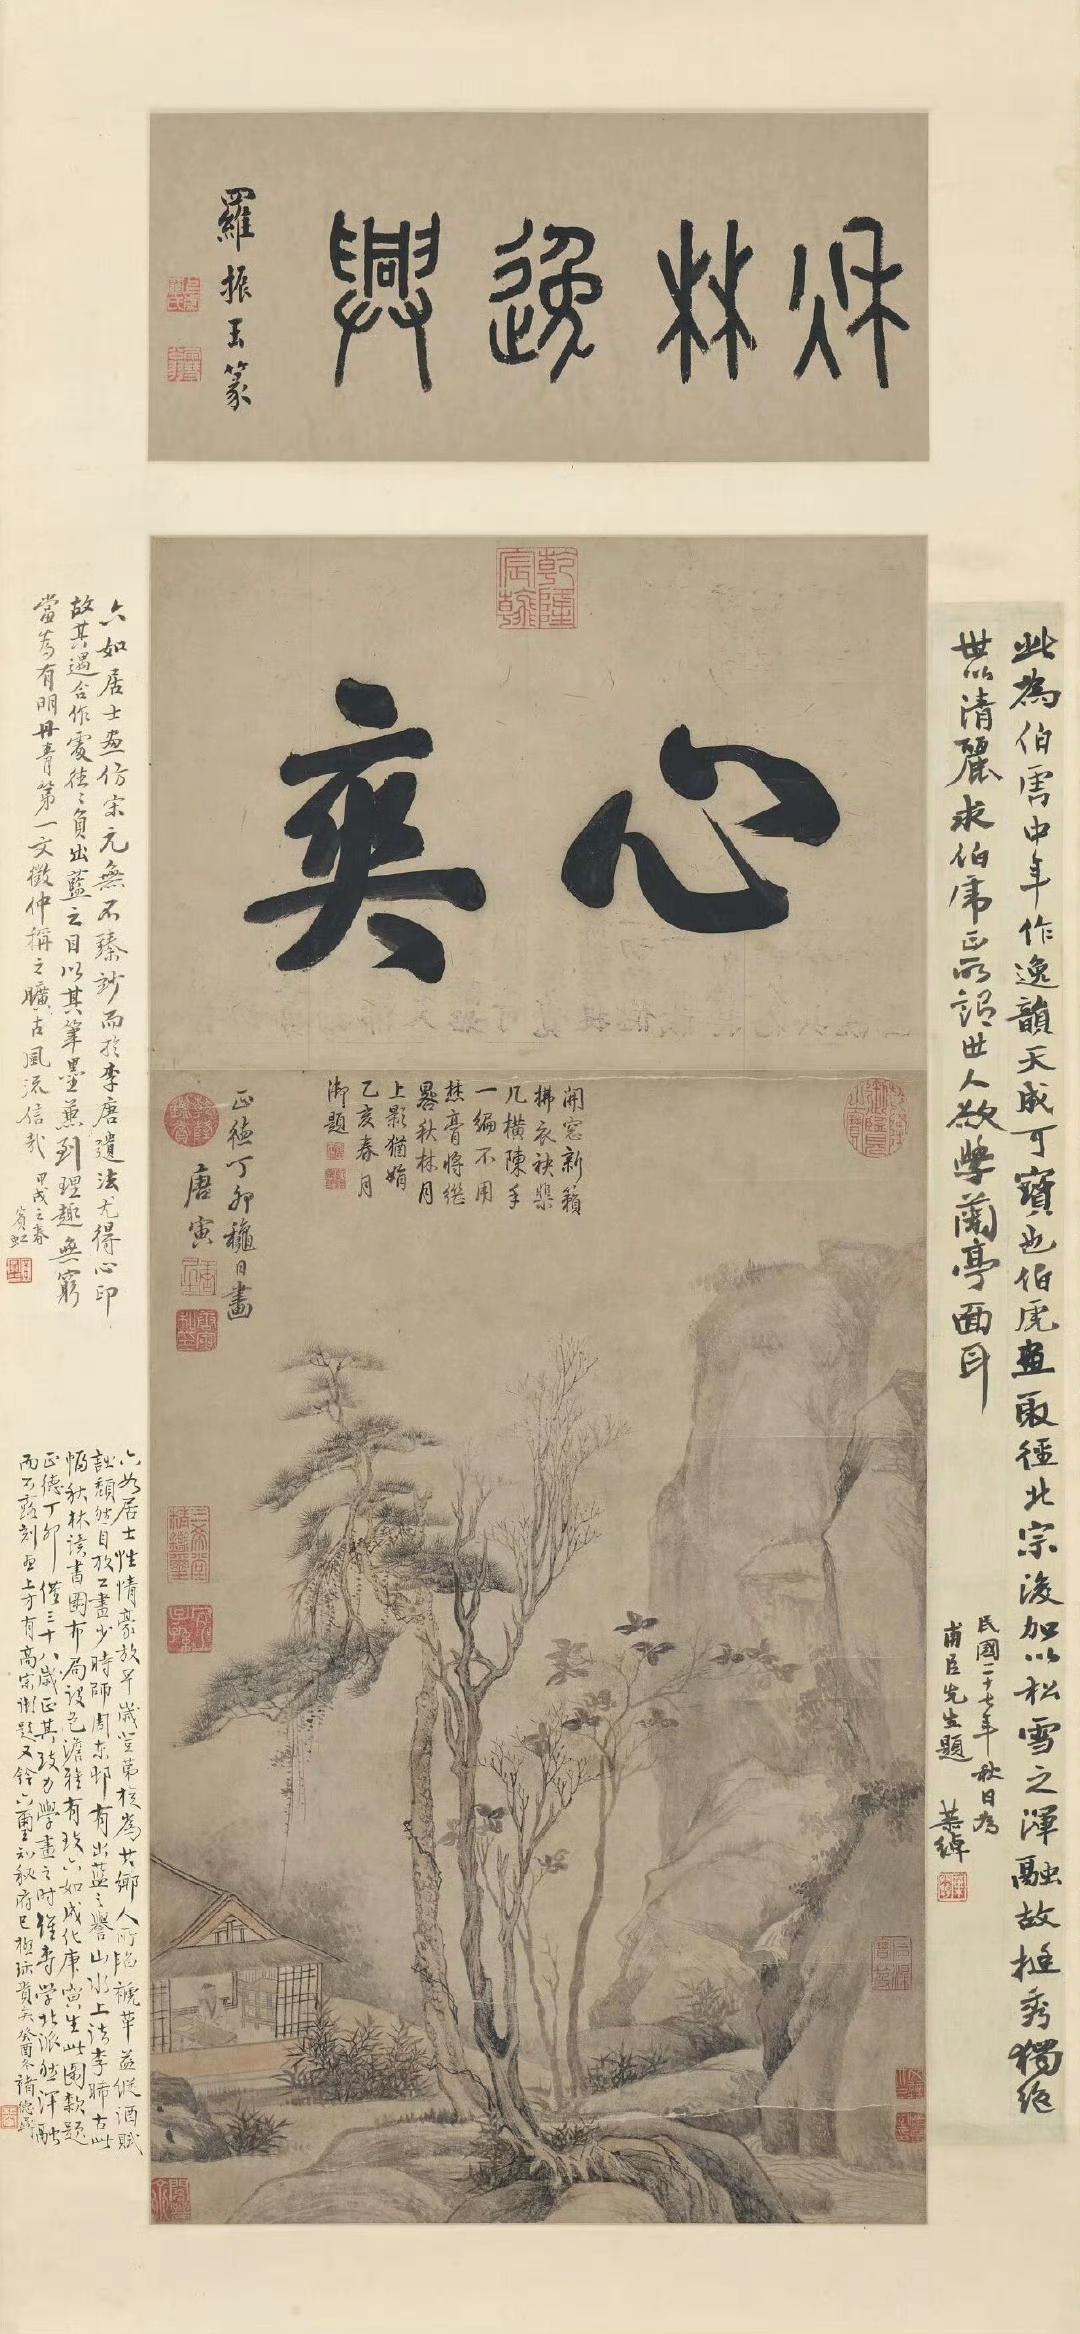 秋林逸興
羅振玉篆
乾隆
宸翰
心爽
開窓新籟
拂衣袂棐
几橫陳手
一編不用
焚膏將繼
晷秋林月
上影猶娟
乙亥春月
御題
正德丁卯穐日畫
唐寅
此為伯虎中年作逸韻天成可寶也伯虎畫取徑北宗後加以松雪之渾融故挺秀獨絕
世以清麗求伯虎正所謂世人欲學蘭亭面耳
民國二十七年秋日為
甫臣先生題 葉綽
六如居士畫仿宋元無不臻妙而於李唐遺法尤得心印
故其遇合作處往往負出藍之目以其筆墨兼到理趣無窮
當為有明丹青第一文徵仲稱之曠古風流信哉 甲戌之春
賓虹
六如居士性情豪放早歲登第根為其鄉人所陷褫革益縱酒賦
詩頹然自放工畫少時師周東邨有出藍之譽山水上法李晞古此
幅秋林讀書圖布局設色澹雅有致六如成化庚寅生此圖款題
正德丁卯僅三十八歲正其致力學畫之時雖專學北派然渾融
而不露刻畫上方有高宗御題又鈐六璽初秘府已極珍貴矣癸酉冬褚德彝